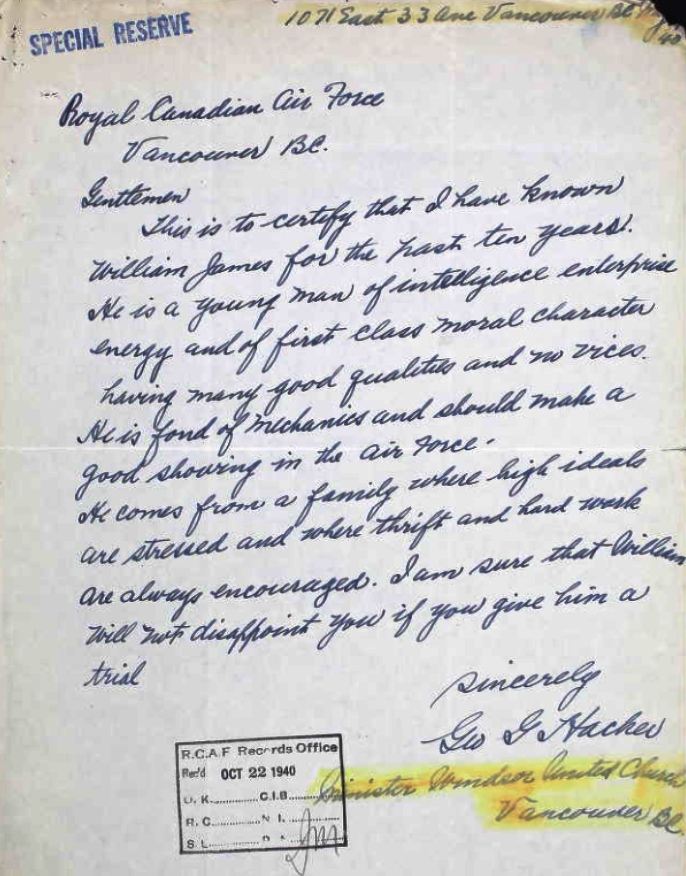 SPECIAL RESERVE
1071 East 33 Ave Vancouver BC
40
Royal Canadian Air Force
Vancouver BC.
Gentlemen
This is to certify that I have known
William James for the past ten years.
He is a young man of intelligence enterprise
energy and of first class moral character
having many good qualities and no vices.
He is fond of mechanics and should make a
good showing in the air force.
He comes from a family where high ideals
are stressed and where thrift and hard work
are always encouraged. I am sure that William
will not disappoint you if you give him a
trial
Sincerely
Geo G Hacker
Minister Windsor United Church
Vancouver BC.
R.C.A.F Records Office
Rec'd OCT 22 1940
D. K. C.I.B.
R. C. N I.
S. L.